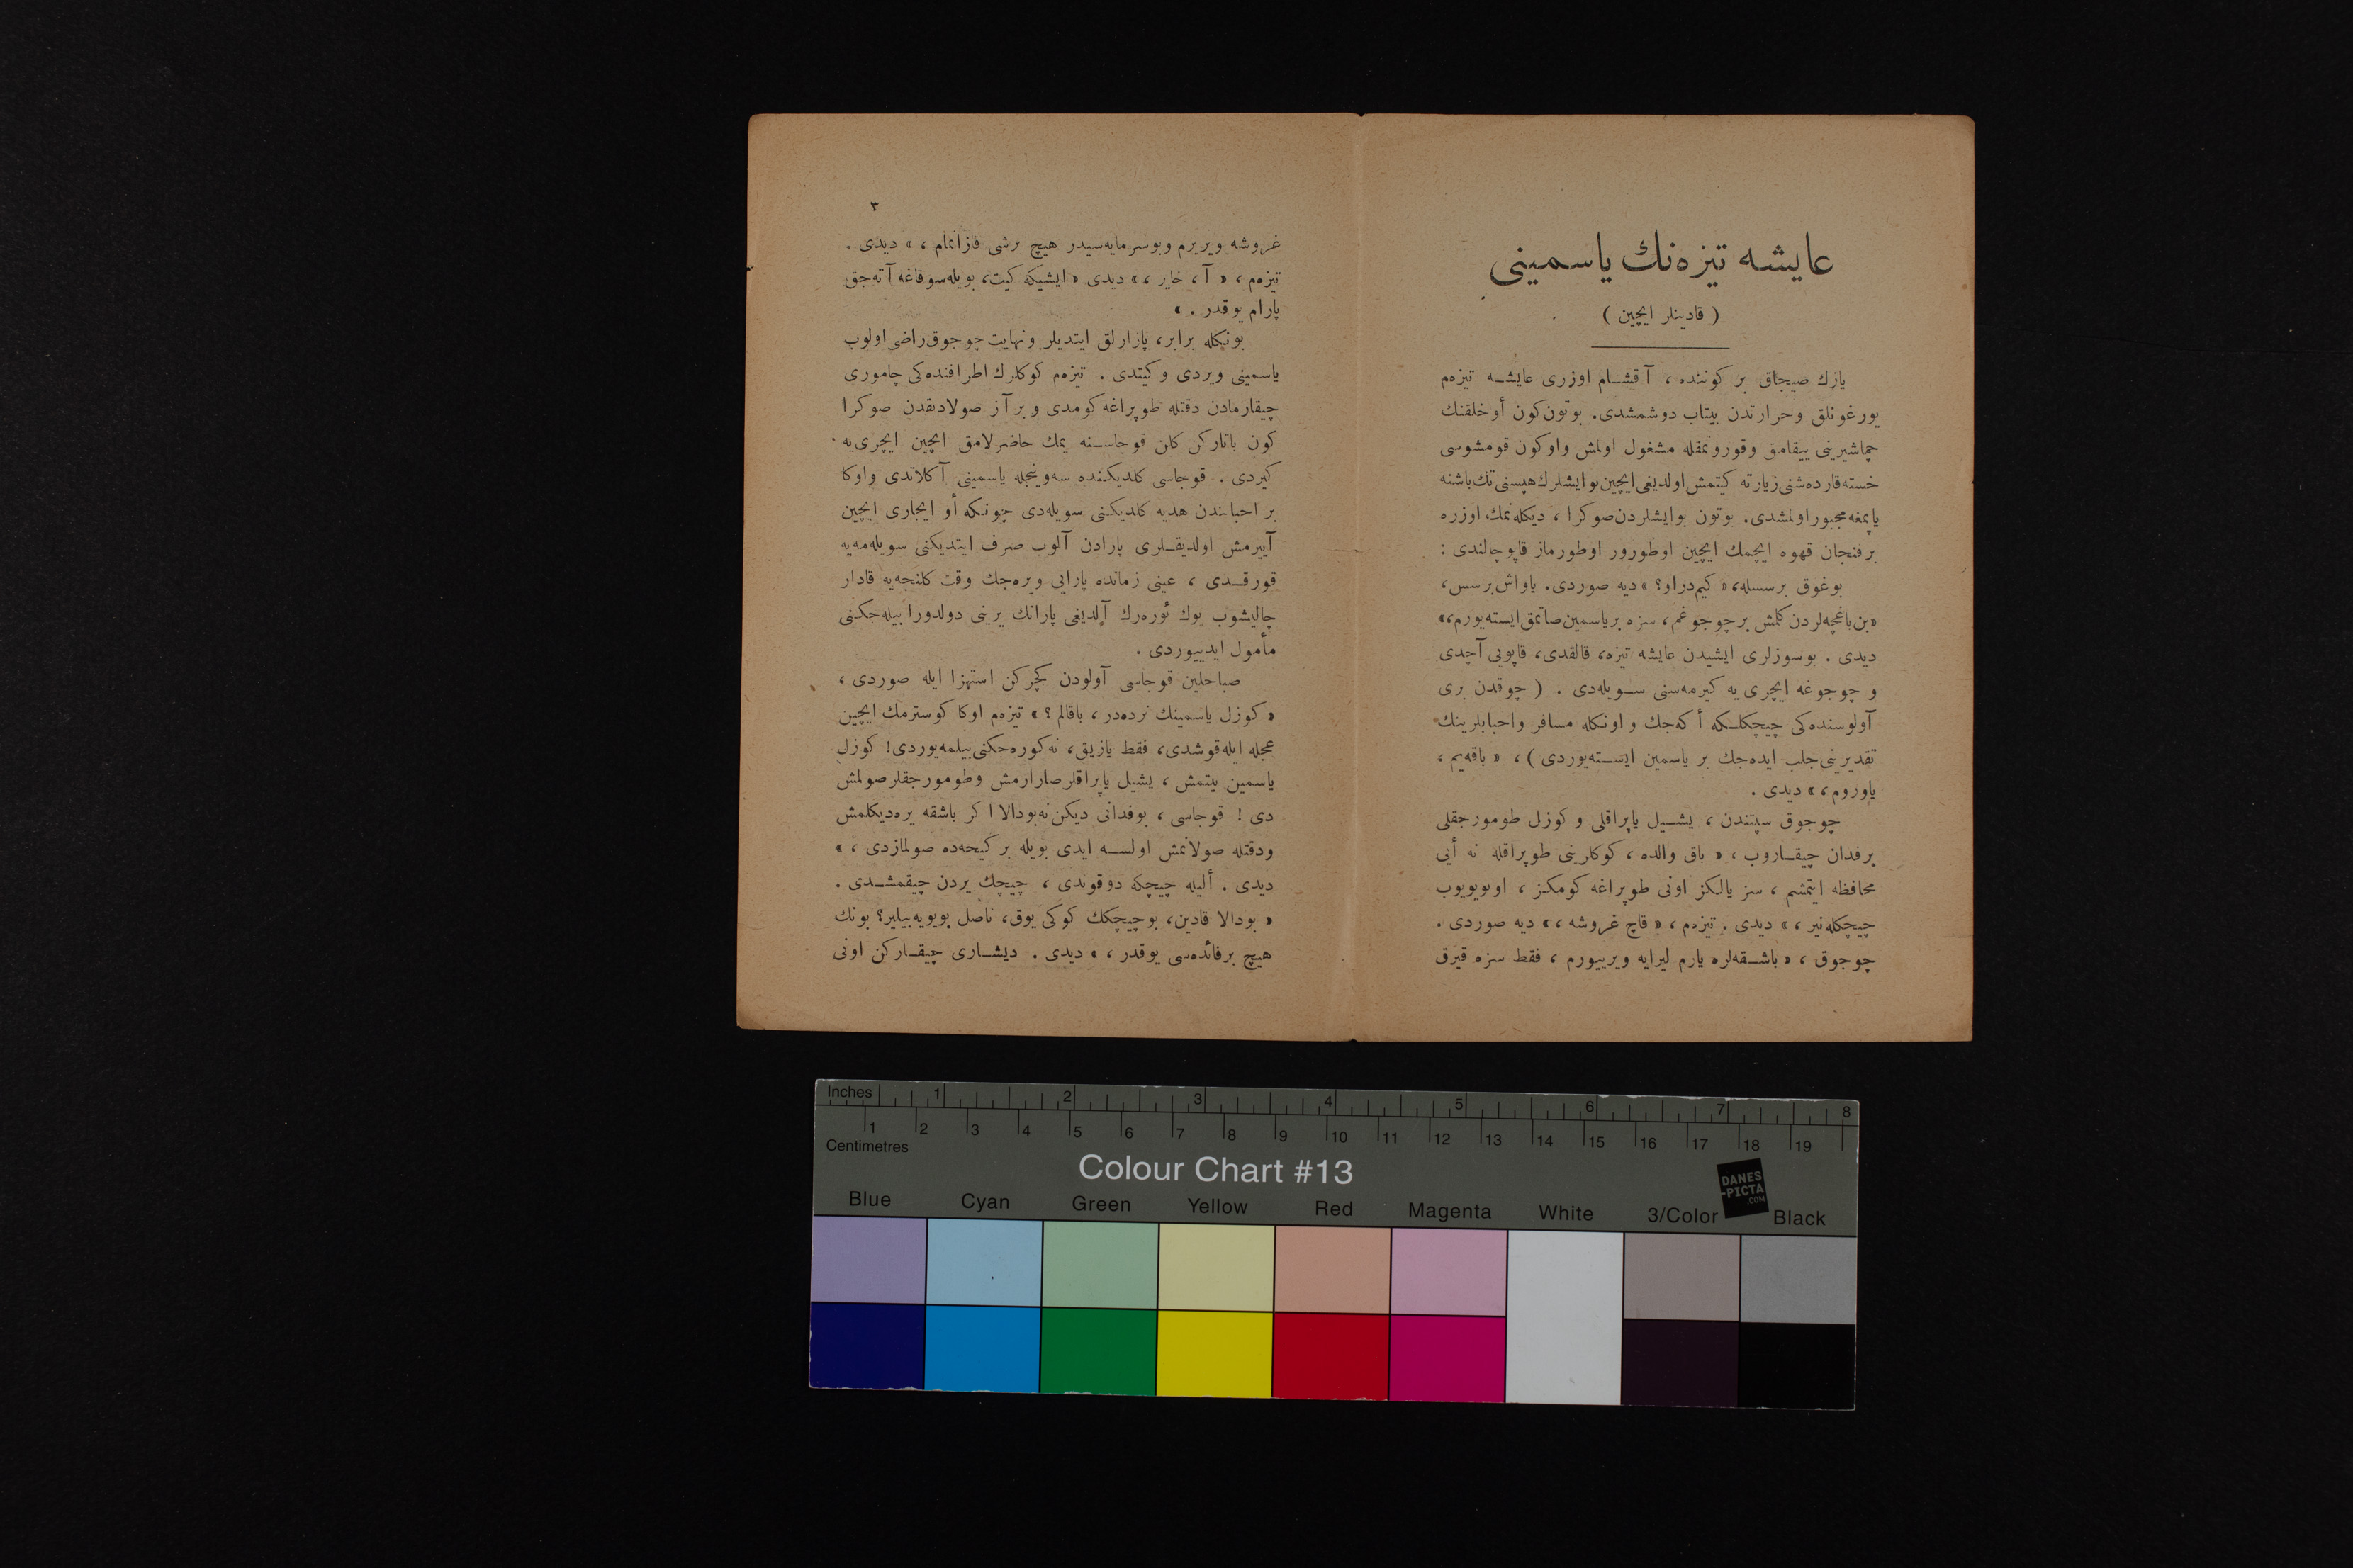 عايشه تيزه‌نك ياسمينى
( قادينلر ايچين )
يازك صيجاق بر كوننده ، آقشــام اوزرى عايشــه تيزه‌م
يورغونلق وحرارتدن بيتاب دوشمشدى. بوتون كون أوخلقنك
چماشيرينى ييقامق وقوروتمقله مشغول اولمش واوكون قومشوسى
خسته قارده‌شنى زيارته كيتمش اولديغى ايچين بوايشلرك هپسنى تك باشنه
ياپمغه مجبور اولمشدى. بوتون بوايشلردن صوكرا ، ديكله‌نمك اوزره
بر فنجان قهوه ايچمك ايچين اوطورور اوطورماز قاپو چالندى :
بوغوق بر سسله، « كيم در او؟ » ديه صوردى. ياواش بر سس،
« بن باغچه‌لردن كلمش بر چوجوغم ، سزه بر ياسمين صاتمق ايسته‌يورم، »
ديدى . بوسوزلرى ايشيدن عايشه تيزه، قالقدى، قاپويى آچدى
و چوجوغه ايچرى يه كيرمه‌سنى ســويله‌دى . ( چوقدن برى
آولوسنده‌كى چيچكلـكه أكه‌جك و اونكله مسافر واحبابلرينك
تقديرينى جلب ايده‌جك بر ياسمين ايســته‌يوردى ) ، « باقه‌يم ،
ياوروم، » ديدى .
چوجوق سپتندن ، يشــيل ياپراقلى و كوزل طومورجقلى
بر فدان چيقــاروب ، « باق والده ، كوكلرينى طوپراقله نه أيى
محافظه ايتمشم ، سز يالكز اونى طوپراغه كومكز ، اوبويويوب
چيچكله‌نير ، » ديدى . تيزه‌م ، « قاچ غروشه ، » ديه صوردى .
چوجوق ، « باشــقه‌لره يارم ليرايه ويرييورم ، فقط سزه قيرق
٣
غروشه ويريرم وبوسرمايه‌سيدر هيچ برشى قازانمام ، » ديدى .
تيزه‌م ، « آ ، خاير ، » ديدى « ايشيكه كيت، بويله سوقاغه آته‌جق
پارام يوقدر . »
بونكله برابر، پازارلق ايتديلر ونهايت چوجوق راضى اولوب
ياسمينى ويردى و كيتدى . تيزه‌م كوكلرك اطرافنده‌كى چامورى
چيقارمادن دقتله طوپراغه كومدى و بر آز صولادقدن صوكرا
كون باتاركن كلن قوجاســنه يمك حاضرلامق ايچين ايچرى‌يه
كيردى . قوجاسى كلديكـنده سه‌وينجله ياسمينى آكلاتدى واوكا
بر احبابندن هديه كلديكنى سويله‌دى چونكه أو ايجارى ايچين
آييرمش اولديقــلرى پارادن آلوب صرف ايتديكنى سويله‌مه‌يه
قورقــدى ، عينى زمانده پارايى ويره‌جك وقت كلنجه‌يه قادار
چاليشوب يوك ئوره‌رك آلديغى پارانك يرينى دولدورا بيله‌جكنى
مأمول ايدييوردى .
صباحلين قوجاسى آولودن كچركن استهزا ايله صوردى ،
« كوزل ياسمينك نره‌ده‌در ، باقالم ؟ » تيزه‌م اوكا كوسترمك ايچين
عجله ايله قوشدى، فقط يازيق، نه كوره‌جكنى بيلمه‌يوردى! كوزل
ياسمين بيتمش ، يشيل ياپراقلر صارارمش وطومورجقلر صولمش
دى ! قوجاسى ، بوفدانى ديكن نه بودالا اكر باشقه يره ديكلمش
ودقتله صولانمش اولســه ايدى بويله بر كيجه‌ده صولمازدى ، »
ديدى . أليله چيچكه دوقوندى ، چيچك يردن چيقمشــدى .
« بودالا قادين، بوچيچكك كوكى يوق، ناصل بويويه‌بيلير؟ بونك
هيچ برفائده‌سى يوقدر ، » ديدى . ديشــارى چيقــاركن اونى
Inches 1 2 3 4 5 6 7 8
1 2 3 4 5 6 7 8 9 10 11 12 13 14 15 16 17 18 19
Centimetres
Colour Chart #13
DANES
-PICTA
.COM
Blue Cyan Green Yellow Red Magenta White 3/Color Black